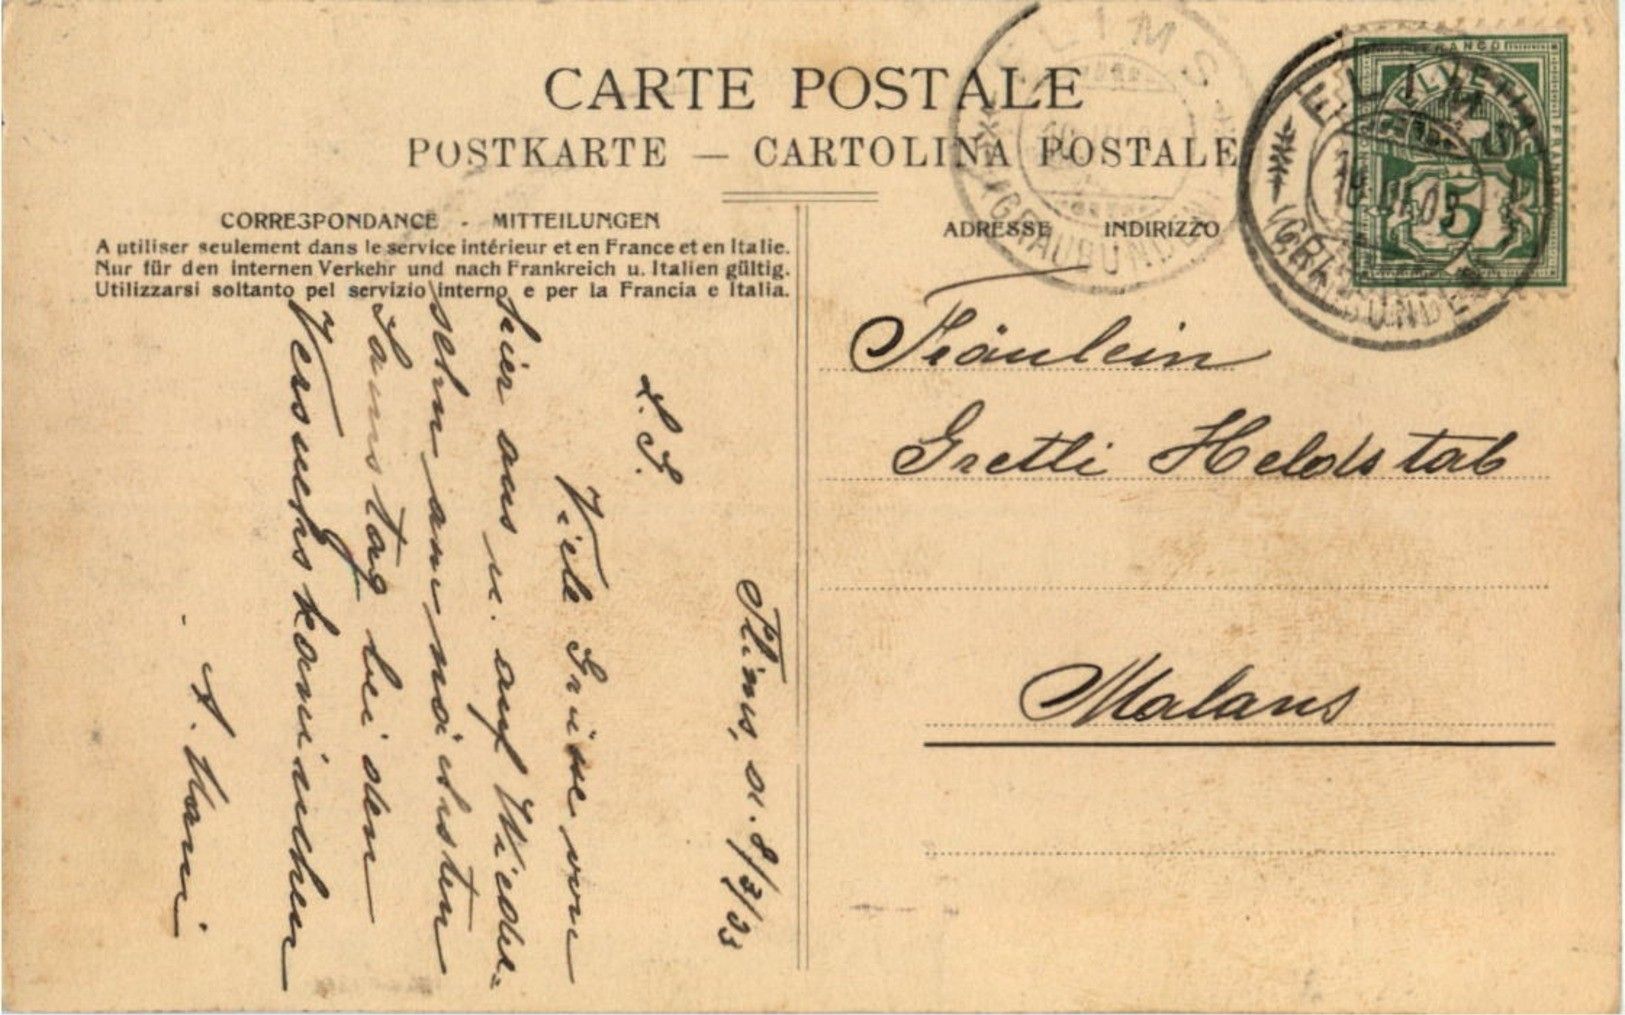 CARTE POSTALE
POSTKARTE — CARTOLINA POSTALE
CORRESPONDANCE - MITTEILUNGEN
A utiliser seulement dans le service intérieur et en France et en Italie.
Nur für den internen Verkehr und nach Frankreich u. Italien gültig.
Utilizzarsi soltanto pel servizio interno e per la Francia e Italia.
ADRESSE INDIRIZZO
FLIMS
(GRAUBÜNDEN)
FLIMS
(GRAUBÜNDEN)
FRANCO
HELVETIA
5
Fräulein
Gretli Heldstab
Malans
Flims, d. 8/3/
L. G.
Viele Grüsse von
hier aus u. auf Wieder-
sehn am nächsten
Samstag bei dem
A.